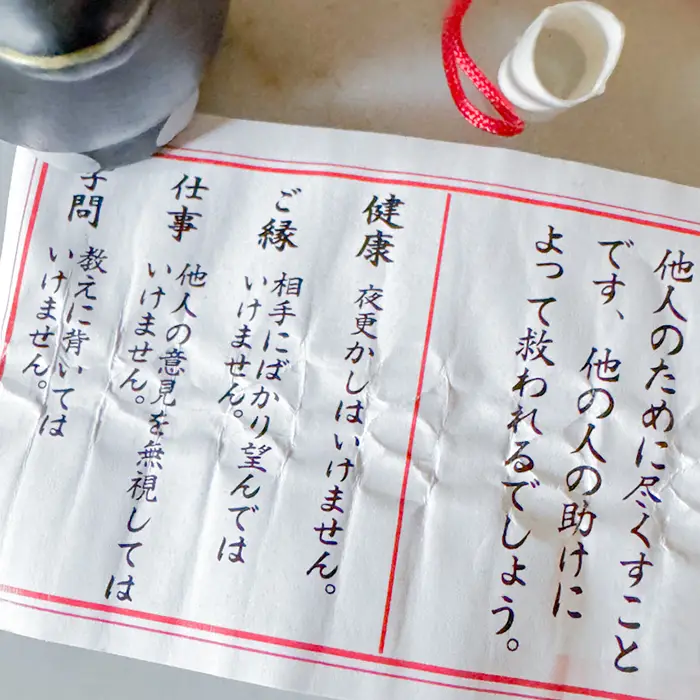 他人のために尽くすこと
です、他の人の助けに
よって救われるでしょう。
健康 夜更かしはいけません。
ご縁 相手にばかり望んでは
いけません。
仕事 他人の意見を無視しては
いけません。
学問 教えに背いては
いけません。